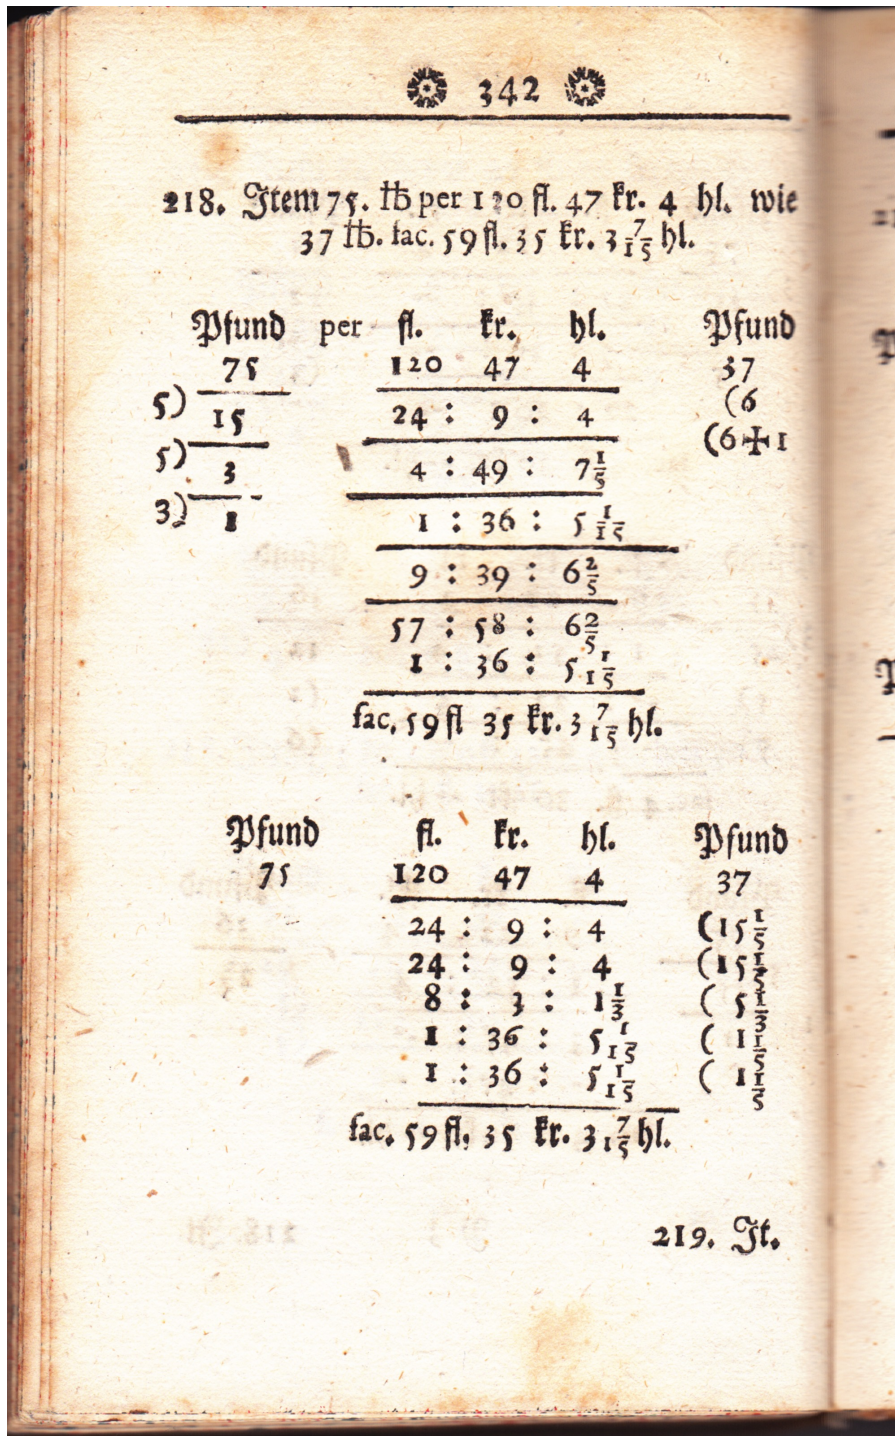 342
218. Item 75. ℔ per 120 fl. 47 kr. 4 hl. wie
37 ℔. fac. 59 fl. 35 kr. 3 7/15 hl.
Pfund per fl. kr. hl. Pfund
75 120 47 4 37
5) 15 24 : 9 : 4 (6
5) 3 4 : 49 : 7 1/5 (6 + 1
3) 1 1 : 36 : 5 1/15
9 : 39 : 6 2/5
57 : 58 : 6 2/5
1 : 36 : 5 1/15
fac. 59 fl 35 kr. 3 7/15 hl.
Pfund fl. kr. hl. Pfund
75 120 47 4 37
24 : 9 : 4 (15 1/5
24 : 9 : 4 (15 1/5
8 : 3 : 1 1/3 ( 5 1/3
1 : 36 : 5 1/15 ( 1 1/5
1 : 36 : 5 1/15 ( 1 1/5
fac. 59 fl. 35 kr. 3 7/15 hl.
219. It.